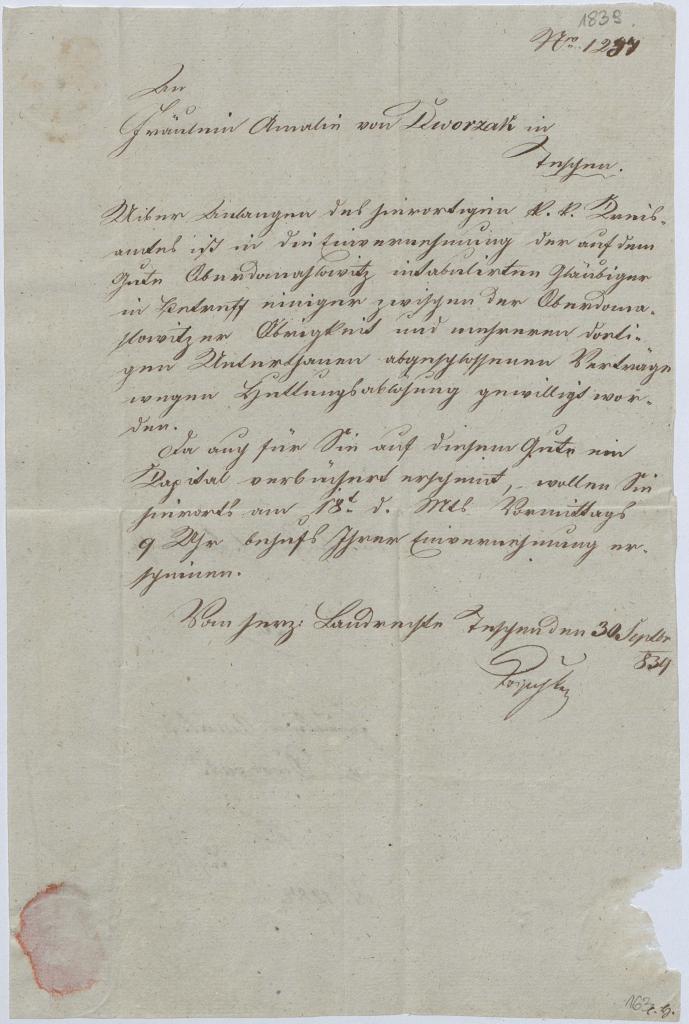 1839.
No. 1297
An
Fräulein Amalie von Dworzak in
Teschen.
Uiber Anlangen des hierortigen k. k. Kreis-
amtes ist in die Einvernehmung der auf dem
Gute Oberdomaslowitz intabulirten Gläubiger
in Betreff einiger zwischen der Oberdoma-
slowitzer Obrigkeit und mehreren dorti-
gen Unterthanen abgeschlossenen Verträge
wegen Huttungsablösung gewilligt wor-
den.
Da auch für Sie auf diesem Gute ein
Kapital verbüchert erscheint, wollen Sie
hierorts am 18t. d. Mts Vormittags
9 Uhr behufs Ihrer Einvernehmung er-
scheinen.
Vom herz: Landrechte Teschen den 30 Septbr
839
163